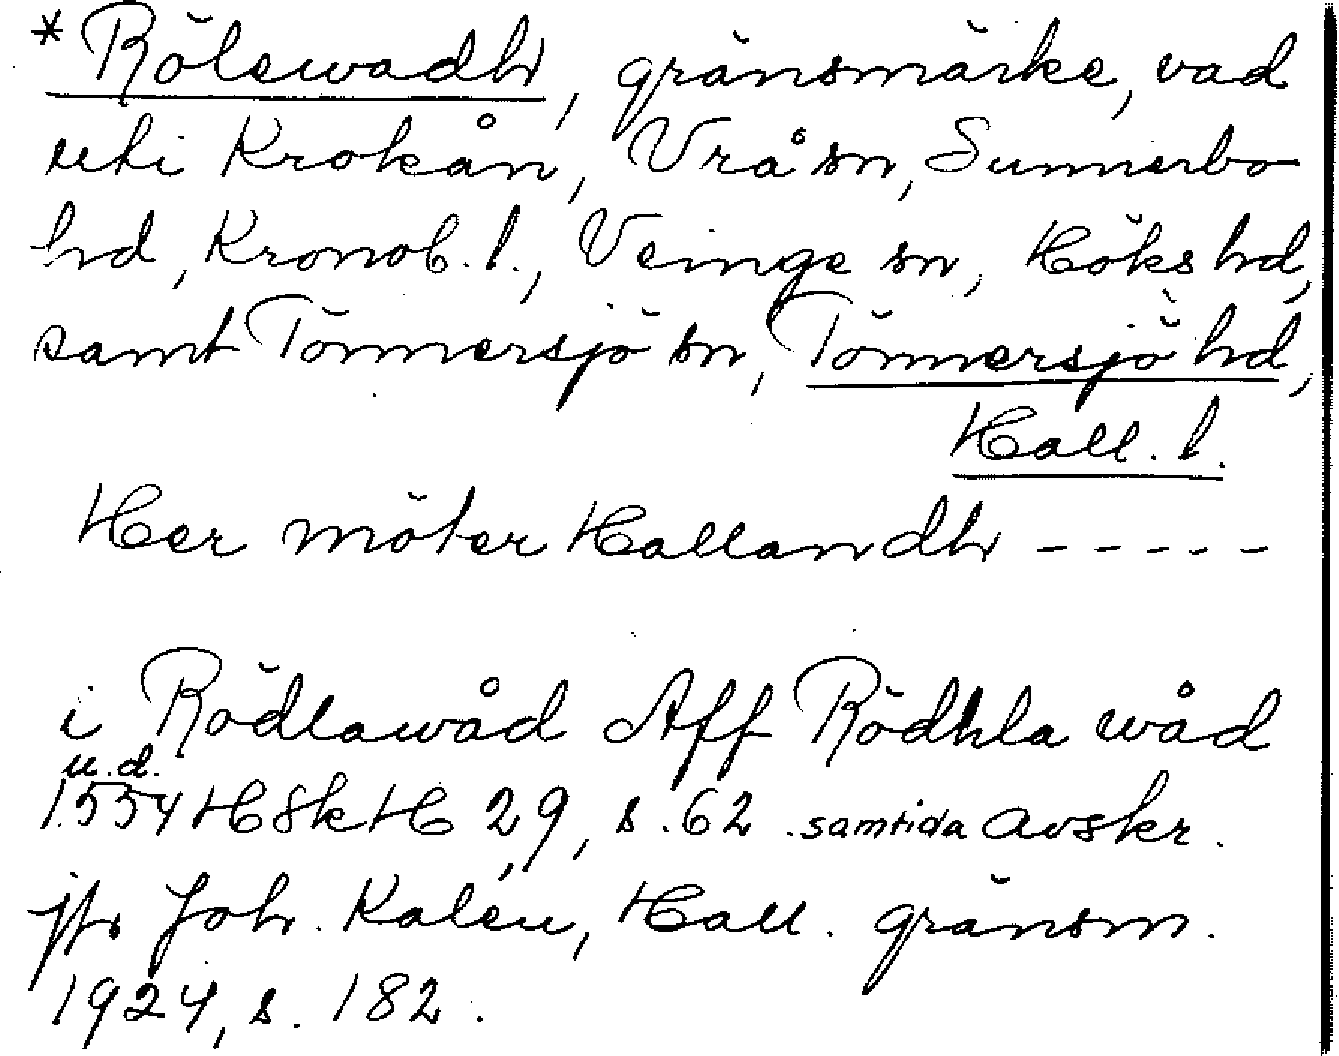 *Rölewadh, gränsmärke, vad
uti Krokån, Vrå sn, Sunnerbo
hd, Kronob. l., Veinge sn, Höks hd,
samt Tönnersjö sn, Tönnersjö hd,
Hall. l.
Her möter Hallandh -----
i Rödlawåd Aff Rödhla wåd
u.d.
1554 HSkH 29, s. 62 samtida avskr.
jfr Joh. Kalén, Hall. gränsm.
1924, s. 182.